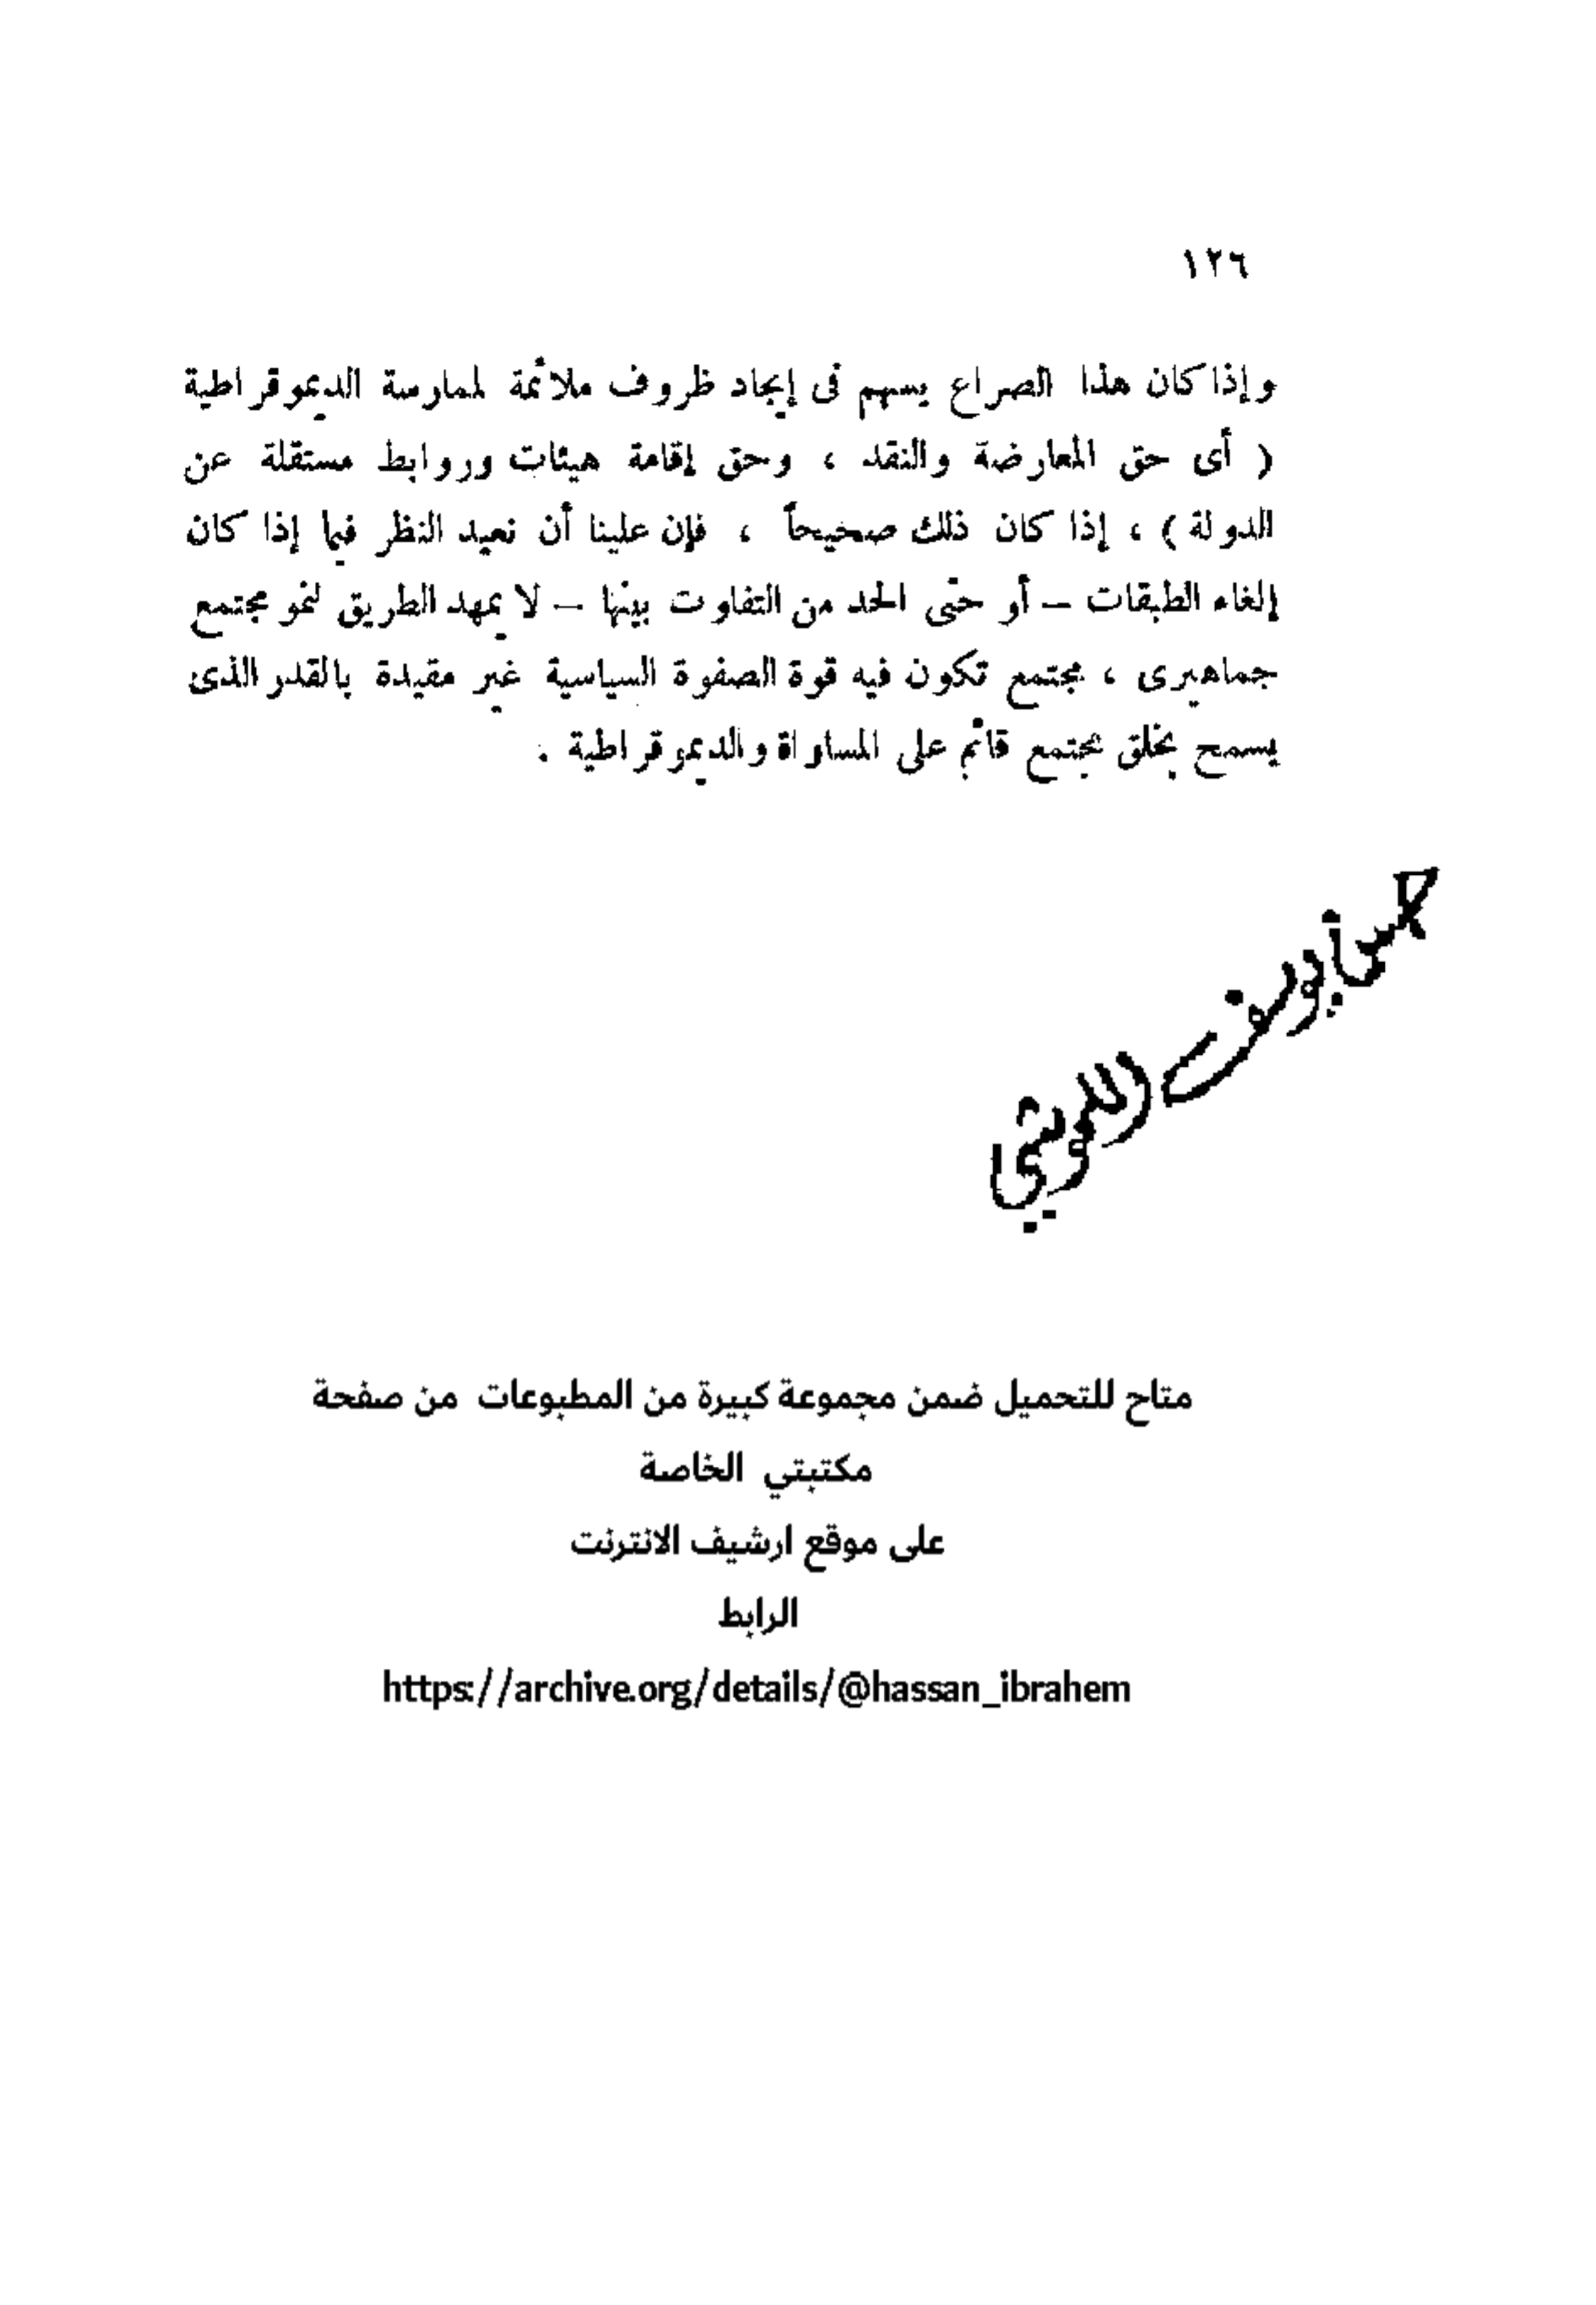 ١٢٦
وإذا كان هذا الصراع يسهم فى إيجاد ظروف ملائمة لممارسة الديموقراطية
( أى حق المعارضة والنقد ، وحق إقامة هيئات وروابط مستقلة عن
الدولة ) ، إذا كان ذلك صحيحاً ، فإن علينا أن نعيد النظر فيما إذا كان
إلغاء الطبقات – أو حتى الحد من التفاوت بينها – لا يمهد الطريق لنمو مجتمع
جماهيرى ، مجتمع تكون فيه قوة الصفوة السياسية غير مقيدة بالقدر الذى
يسمح بخلق مجتمع قائم على المساواة والديموقراطية .
متاح للتحميل ضمن مجموعة كبيرة من المطبوعات من صفحة
مكتبتي الخاصة
على موقع ارشيف الانترنت
الرابط
https://archive.org/details/@hassan_ibrahem